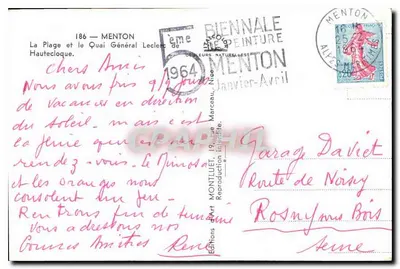 186 — MENTON
La Plage et le Quai Général Leclerc de
Hautecloque.
5ème
1964
BIENNALE
DE PEINTURE
MENTON
Janvier-Avril
MENTON
Chers Amis
Nous avons pris 9 jours
de vacances en direction
du soleil - mais c'est
la qui est au
rendez-vous. Le Mimosa
et les oranges nous
consolent un peu.
Rentrons fin de semaine
Vous adressons nos
Bonnes Amitiés René
Editions d'Art MONTLUET, 19, rue Marceau, Nice
Reproduction interdite.
Garage Daviet
Route de Noisy
Rosny sous Bois
Seine